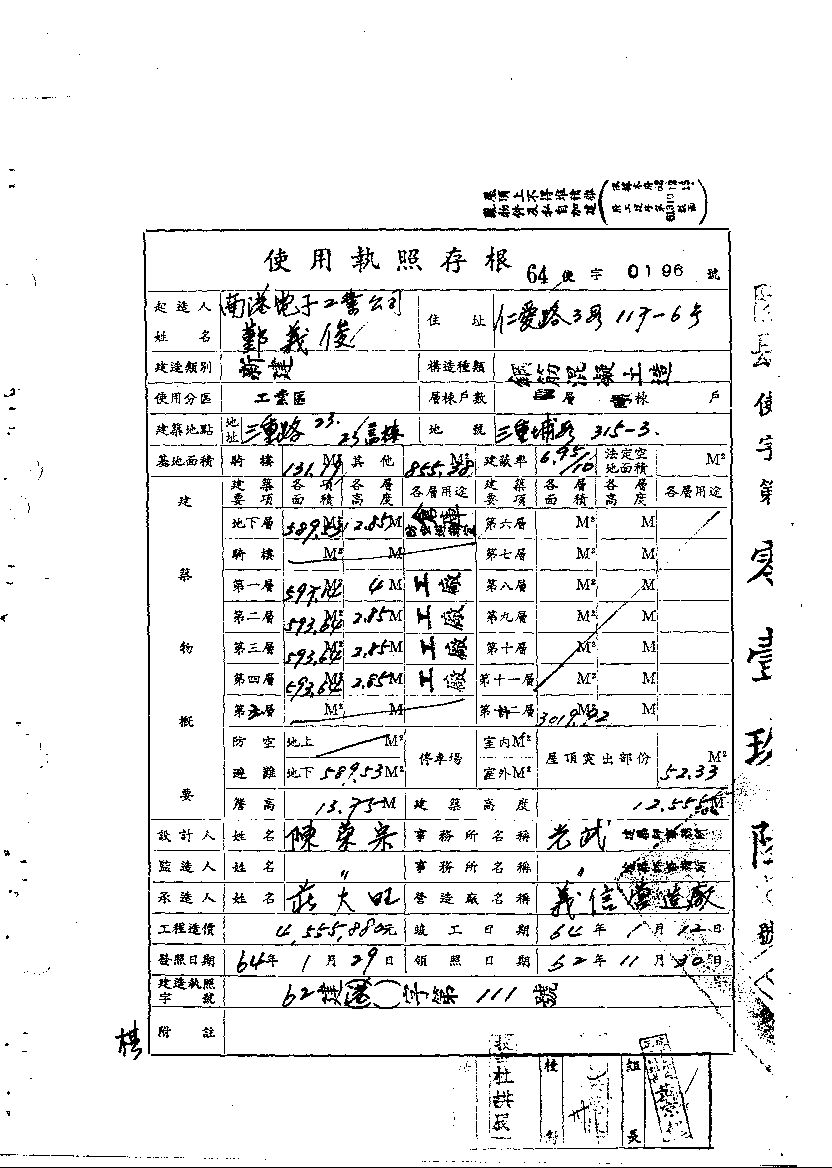 使用執照存根 64 使字 0196 號
起造人姓名 南港電子工業公司 鄭義俊 住址 仁愛路3段117-6號
建造類別 新建 構造種類 鋼筋混凝土造
使用分區 工業區 層棟戶數 層 棟 戶
建築地點 地址 三重路 23. 地號 三重埔段 315-3.
基地面積 騎樓 131.79 M² 其他 855.38 M² 建蔽率 6.95/10 法定空地面積 M²
建築物概要 建築要項 各項面積 各層高度 各層用途 建築要項 各層面積 各層高度 各層用途
地下層 589.53 M² 2.85M 倉庫 第六層 M² M
騎樓 M² M 第七層 M² M
第一層 M² 4M 工廠 第八層 M² M
第二層 593.64 M² 2.85M 工廠 第九層 M² M
第三層 593.64 M² 2.85M 工廠 第十層 M² M
第四層 593.64 M² 2.85M 工廠 第十一層 M² M
第五層 M² M 第十二層 M² M
防空避難 地上 M² 停車場 室內M² 屋頂突出部份 M²
地下 589.53M² 室外M² 52.33
簷高 M 建築高度 12.55 M
設計人 姓名 陳榮宗 事務所名稱 光武
監造人 姓名 〃 事務所名稱 〃
承造人 姓名 莊大旺 營造廠名稱 義信營造廠
工程造價 4,555,880元 竣工日期 64年1月12日
發照日期 64年1月29日 領照日期 62年11月30日
建造執照字號 62建(港)字第111號
附註
使字第零壹玖陸號
組長